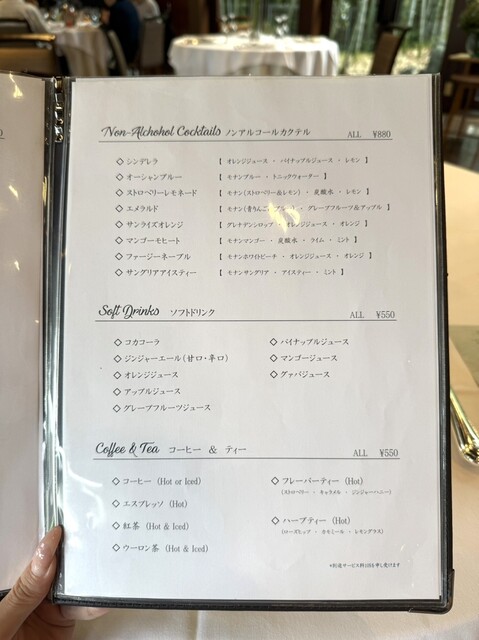 Non-Alchohol Cocktails ノンアルコールカクテル ALL ¥880
◇ シンデレラ 【 オレンジジュース ・ パイナップルジュース ・ レモン 】
◇ オーシャンブルー 【 モナンブルー ・ トニックウォーター 】
◇ ストロベリーレモネード 【 モナン(ストロベリー&レモン) ・ 炭酸水 ・ レモン 】
◇ エメラルド 【 モナン(青りんご ・ グレープフルーツ&アップル 】
◇ サンライズオレンジ 【 グレナデンシロップ ・ オレンジジュース ・ オレンジ 】
◇ マンゴーモヒート 【 モナンマンゴー ・ 炭酸水 ・ ライム ・ ミント 】
◇ ファージーネーブル 【 モナンホワイトピーチ ・ オレンジジュース ・ オレンジ 】
◇ サングリアアイスティー 【 モナンサングリア ・ アイスティー ・ ミント 】
Soft Drinks ソフトドリンク ALL ¥550
◇ コカコーラ ◇ パイナップルジュース
◇ ジンジャーエール(甘口・辛口) ◇ マンゴージュース
◇ オレンジジュース ◇ グァバジュース
◇ アップルジュース
◇ グレープフルーツジュース
Coffee & Tea コーヒー & ティー ALL ¥550
◇ コーヒー (Hot or Iced) ◇ フレーバーティー (Hot)
(ストロベリー ・ キャラメル ・ ジンジャーハニー)
◇ エスプレッソ (Hot)
◇ 紅茶 (Hot & Iced) ◇ ハーブティー (Hot)
(ローズヒップ ・ カモミール ・ レモングラス)
◇ ウーロン茶 (Hot & Iced)
*別途サービス料10%を申し受けます